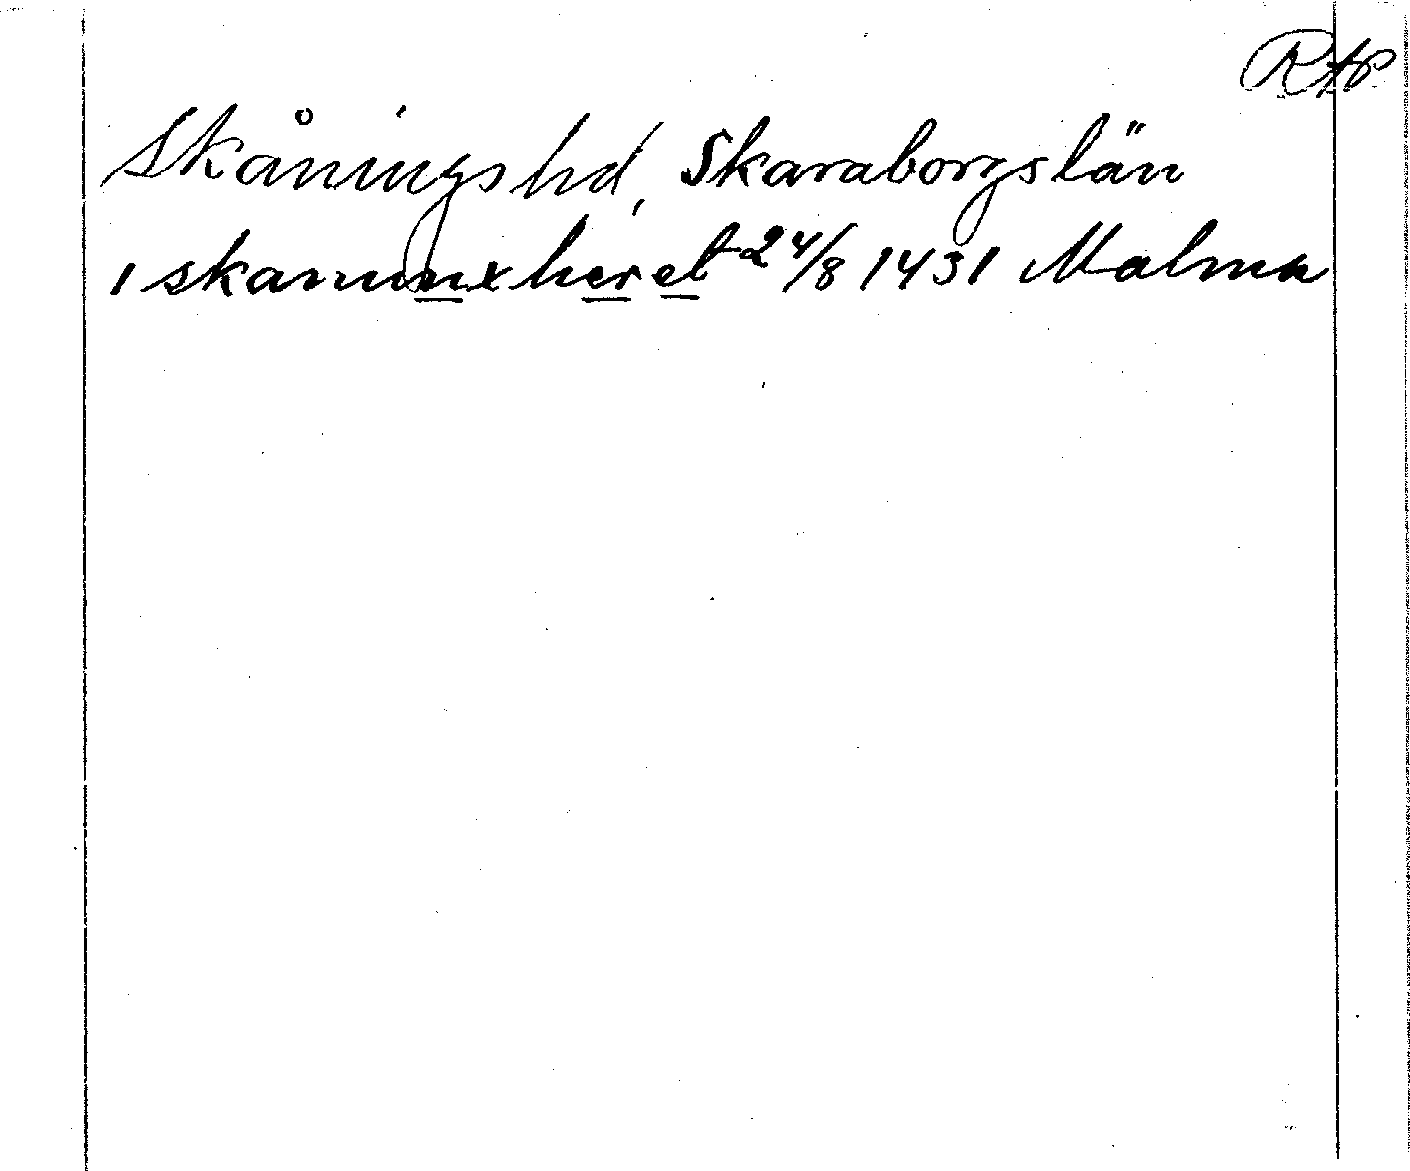 RAP
Skånings hd, Skaraborgs län
i skanunx heret 24/8 1431 Malma